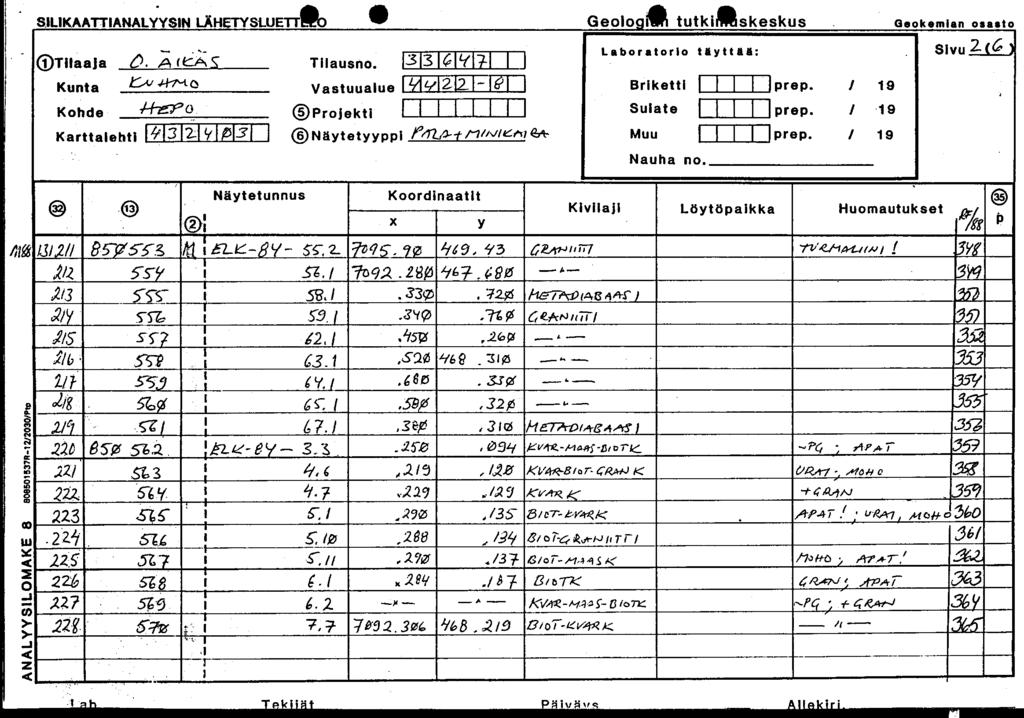 SILIKAATTIANALYYSIN LÄHETYSLUETTELO Geologian tutkimuskeskus Geokemian osasto
① Tilaaja O. ÄIKÄS Tilausno. 33647 Laboratorio täyttää: Sivu 2(6)
Kunta KUHMO Vastuualue 4422-8 Briketti prep. / 19
Kohde HEPO ⑤ Projekti Sulate prep. / 19
Karttalehti 432403 ⑥ Näytetyyppi PALA+MINIKAIRA Muu prep. / 19
Nauha no.
㉜ ⑬ ② Näytetunnus Koordinaatit Kivilaji Löytöpaikka Huomautukset RF/88 ㉟ p
x y
M88 131211 85Ø553 M ELK-84- 55.2 7095.9Ø 469.43 GRANIITTI TURMALIINI ! 348
212 554 56.1 7Ø92.28Ø 467.68Ø —"— 349
213 555 58.1 .33Ø .72Ø METADIABAASI 350
214 556 59.1 .34Ø .76Ø GRANIITTI 351
215 557 62.1 .45Ø .26Ø —"— 352
216 558 63.1 .52Ø 468.31Ø —"— 353
217 559 64.1 .68Ø .33Ø —"— 354
218 56Ø 65.1 .58Ø .32Ø —"— 355
219 561 67.1 .38Ø .31Ø METADIABAASI 356
220 85Ø 562 ELK-84- 3.3 .25Ø .Ø94 KVAR-MAAS-BIOTK ~PG ; APAT 357
221 563 4.6 .219 .12Ø KVAR-BIOT-GRAN K URA1 ; MOHO 358
222 564 4.7 .229 .129 KVARK +GRAN 359
223 565 5.1 .29Ø .135 BIOT-KVARK APAT ! ; URA1, MOHO 360
224 566 5.1Ø .288 .134 BIOT-GRANIITTI 361
225 567 5.11 .29Ø .137 BIOT-MAASK MOHO ; APAT ! 362
226 568 6.1 .284 .167 BIOTK GRAN ; APAT 363
227 569 6.2 —"— —"— KVAR-MAAS-BIOTK ~PG ; +GRAN 364
228 57Ø 7.7 7Ø92.3Ø6 468.219 BIOT-KVARK —"— 365
ANALYYSILOMAKE 8 808501537R-12/2030/Ptp
Lab. Tekijät Päiväys Allekirj.